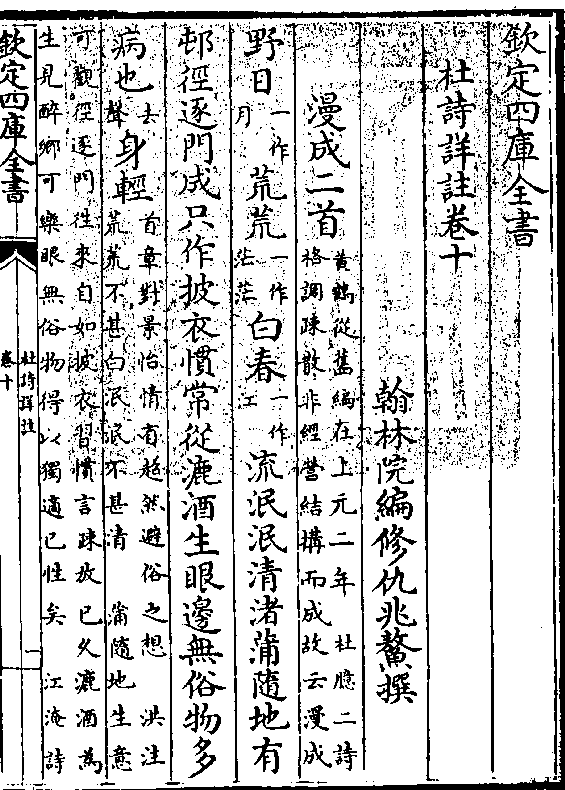 欽定四庫全書
杜詩詳註卷十
翰林院編修仇兆鰲撰
漫成二首黃鶴從舊編在上元二年 杜臆二詩
格調疎散非經營結構而成故云漫成
野日一作月荒荒一作茫茫白春一作江流泯泯清渚蒲隨地有
邨徑逐門成只作披衣慣常從漉酒生眼邊無俗物多
病也去聲身輕首章對景怡情有超然避俗之想 洪注
荒荒不甚白泯泯不甚清 蒲隨地生意
可觀徑逐門往來自如披衣習慣言疎放已久漉酒為
生見醉鄉可樂眼無俗物得以獨適已性矣 江淹詩
欽定四庫全書
杜詩詳註
卷十
一